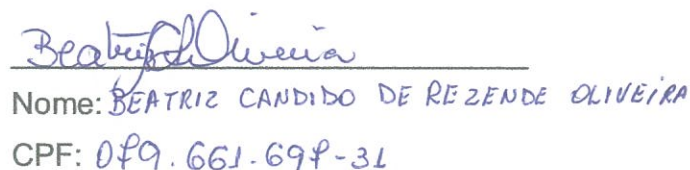 Beatriz C R Oliveira
Nome: BEATRIZ CANDIDO DE REZENDE OLIVEIRA
CPF: 079.661.697-31